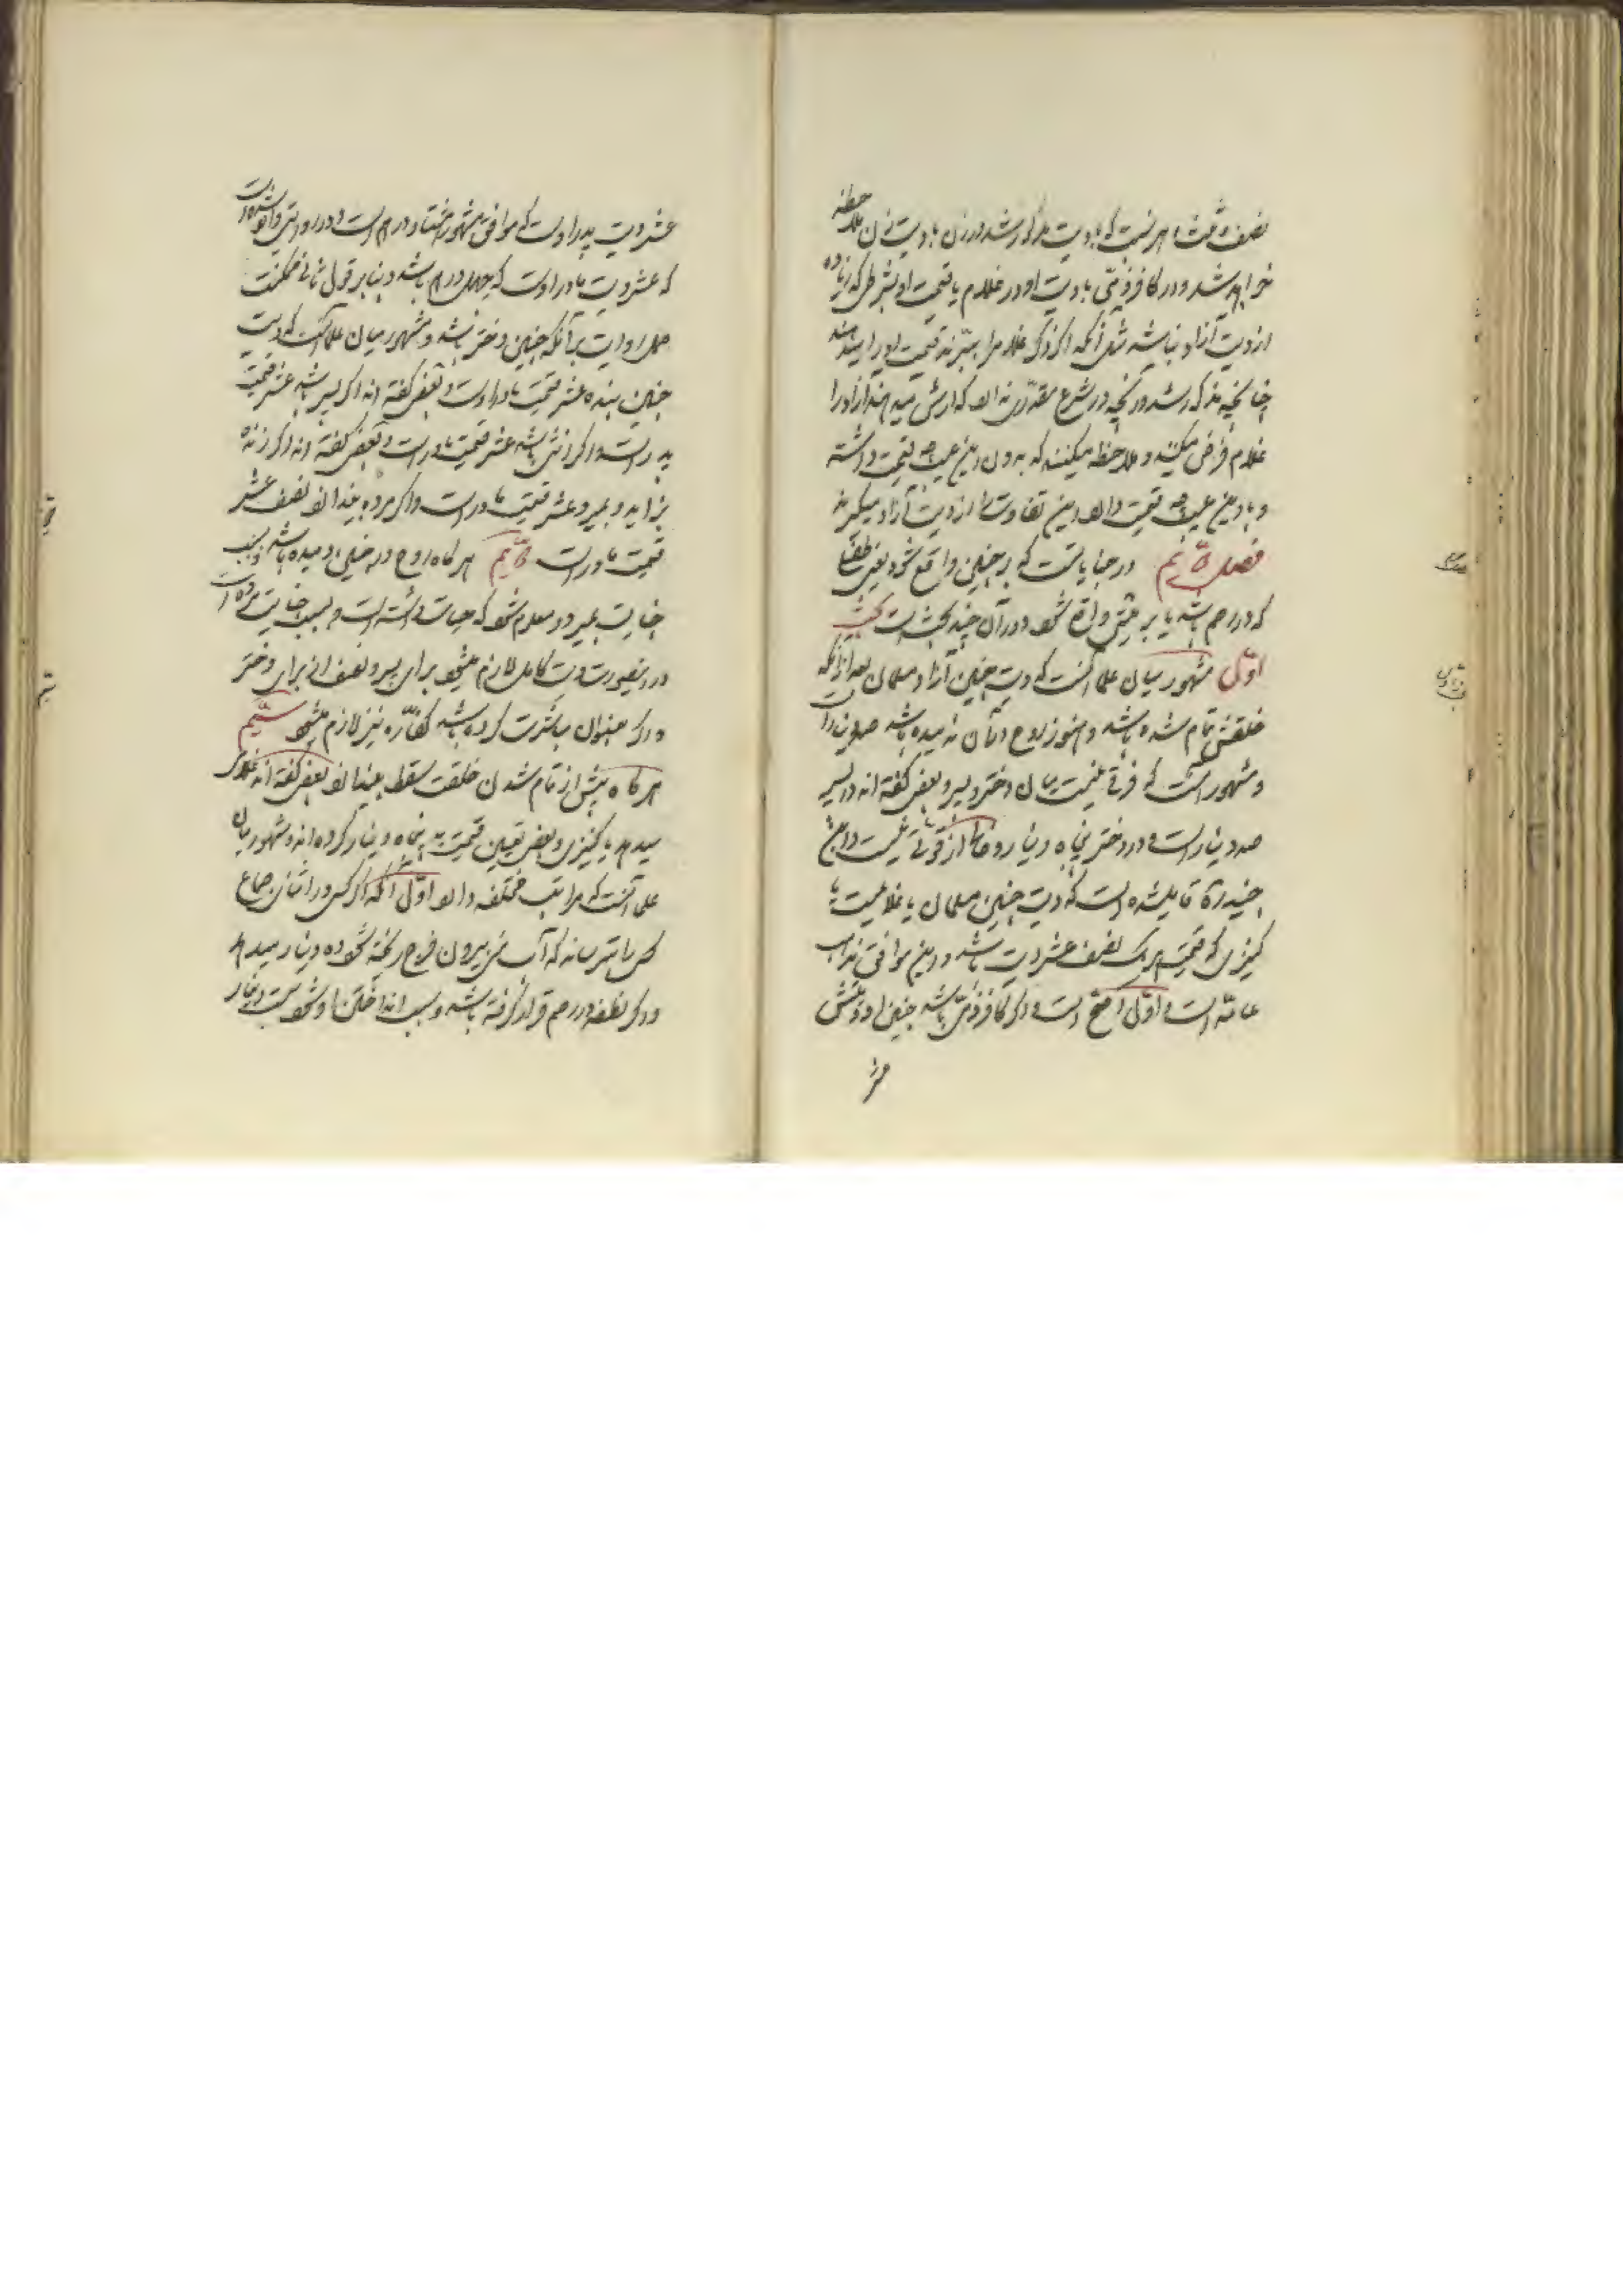 نصف و ثلث هر نسبت که با دیت مذکور شد در زن با دیت زن ملاحظه
خواهد شد و در کافر ذمّی با دیت او و در غلام با قیمت او بشرطی که زیاده
از دیت آزاد نباشد مثل آنکه اگر ذکر غلام را ببرّند قیمت او را میدهند
چنانچه مذکور شد و آنچه در شرع مقدّری ندارد که ارش میدهند آزاد را
غلام فرض میکنند و ملاحظه میکنند که بدون این عیب چه قیمت داشته
و با این عیب چه قیمت دارد این تفاوت را از دیت آزاد میگیرند
فصل در جنایاتست که بر جنین واقع شود یعنی طفلی
که در رحم باشد یا بر میّتی واقع شود و در آن چند بحث است بحث
اوّل مشهور میان علما آنست که دیت جنین آزاد مسلمان بعد از آنکه
خلقتش تمام شده باشد و هنوز روح در آن ندمیده باشد صد دینار است
و مشهور آنست که فرقی نیست میان دختر و پسر و بعضی گفته اند در پسر
صد دینار است و در دختر پنجاه دینار و از قوّتی نیست و ابن
جنید قایل شده است که دیت جنین مسلمان یا غلامیست یا
کنیزی که قیمت هر یک نصف عشر دیت باشد و این موافق مذاهب
عامّه است و اوّل اصحّ است و اگر کافر ذمّی باشد جنین او دیتش
عشر
عشر دیت پدر اوست که موافق مشهور هشتاد درهم است و در روایتی وارد شده است
که عشر دیت مادر اوست که چهل درهم باشد و بنابر قول ثانی ممکنست
حمل روایت بر آنکه جنین دختر باشد و مشهور میان علما آنست که دیت
جنین بنده عشر قیمت مادر اوست و بعضی گفته اند اگر پسر باشد عشر قیمت
پدر است و اگر انثی باشد عشر قیمت مادر است و بعضی گفته اند اگر زنده
بزاید و بمیرد عشر قیمت مادر است و اگر مرده بیندازد نصف عشر
قیمت مادر است هرگاه روح در جنین دمیده باشد و بسبب
جنایت بمیرد و معلوم شود که حیات داشته است و بسبب جنایت مرده است
در اینصورت دیت کامل لازم میشود برای پسر و نصف آن برای دختر
و اگر بعنوان مباشرت کرده باشد کفّاره نیز لازم میشود سیّم
هرگاه پیش از تمام شدن خلقت سقط بیندازد بعضی گفته اند غلامی
میدهد یا کنیزی و بعضی تعیین قیمت به پنجاه دینار کرده اند و مشهور میان
علما آنست که مراتب مختلفه دارد اوّل آنکه اگر کسی در اثنای جماع
کسی را بترساند که آب منی بیرون فرج ریخته شود ده دینار میدهد
و اگر نطفه در رحم قرار گرفته باشد و سبب انداختن او شود بیست دینار